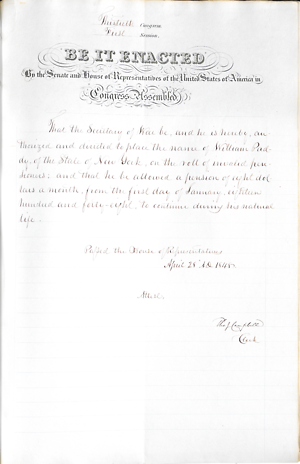 Thirtieth Congress
First Session
BE IT ENACTED
By the Senate and House of Representatives of the United States of America in
Congress Assembled
That the Secretary of War be, and he is hereby, au-
thorized and directed to place the name of William Ped-
dy, of the State of New York, on the roll of invalid pen-
sioners; and that he be allowed a pension of eight dol-
lars a month, from the first day of January, eighteen
hundred and forty-eight, to continue during his natural
life.
Passed the House of Representatives
April 28 A.D. 1848.
Attest.
Campbell
Clerk